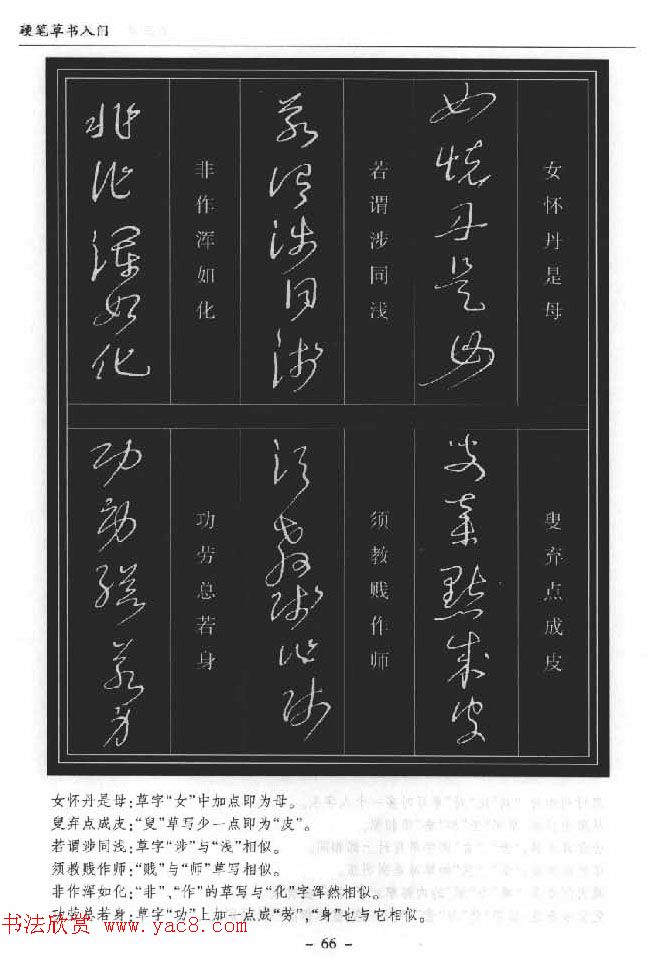 硬笔草书入门
女怀丹是母
女怀丹是母
叟弃点成皮
叟弃点成皮
若谓涉同浅
若谓涉同浅
须教贱作师
须教贱作师
非作浑如化
非作浑如化
功劳总若身
功劳总若身
女怀丹是母:草字“女”中加点即为母。
叟弃点成皮:“叟”草写少一点即为“皮”。
若谓涉同浅:草字“涉”与“浅”相似。
须教贱作师:“贱”与“师”草写相似。
非作浑如化:“非”、“作”的草写与“化”字浑然相似。
功劳总若身:草字“功”上加一点成“劳”,“身”也与它相似。
书法欣赏 www.yac8.com
- 66 -